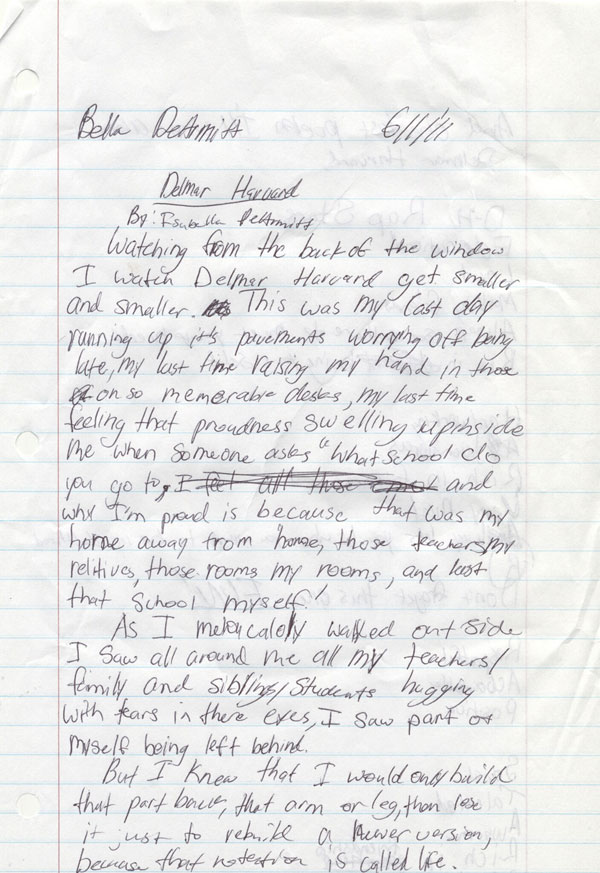 Bella DeArmitt 6/1/11
Delmar Harvard
By: Isabella DeArmitt
Watching from the back of the window
I watch Delmar Harvard get smaller
and smaller. This was my last day
running up it's pavements worrying off being
late, my last time raising my hand in those
on so memorable desks, my last time
feeling that proudness swelling up inside
me when someone asks "what school do
you go to, I feel all those and
why I'm proud is because that was my
home away from home, those teachers my
relitives, those rooms my rooms, and last
that school myself.
As I melencaloly walked out side
I saw all around me all my teachers/
family and siblings/students hugging
with tears in there eyes, I saw part of
myself being left behind.
But I knew that I would only build
that part back, that arm or leg, then lose
it just to rebuild a newer version,
because that is called life.